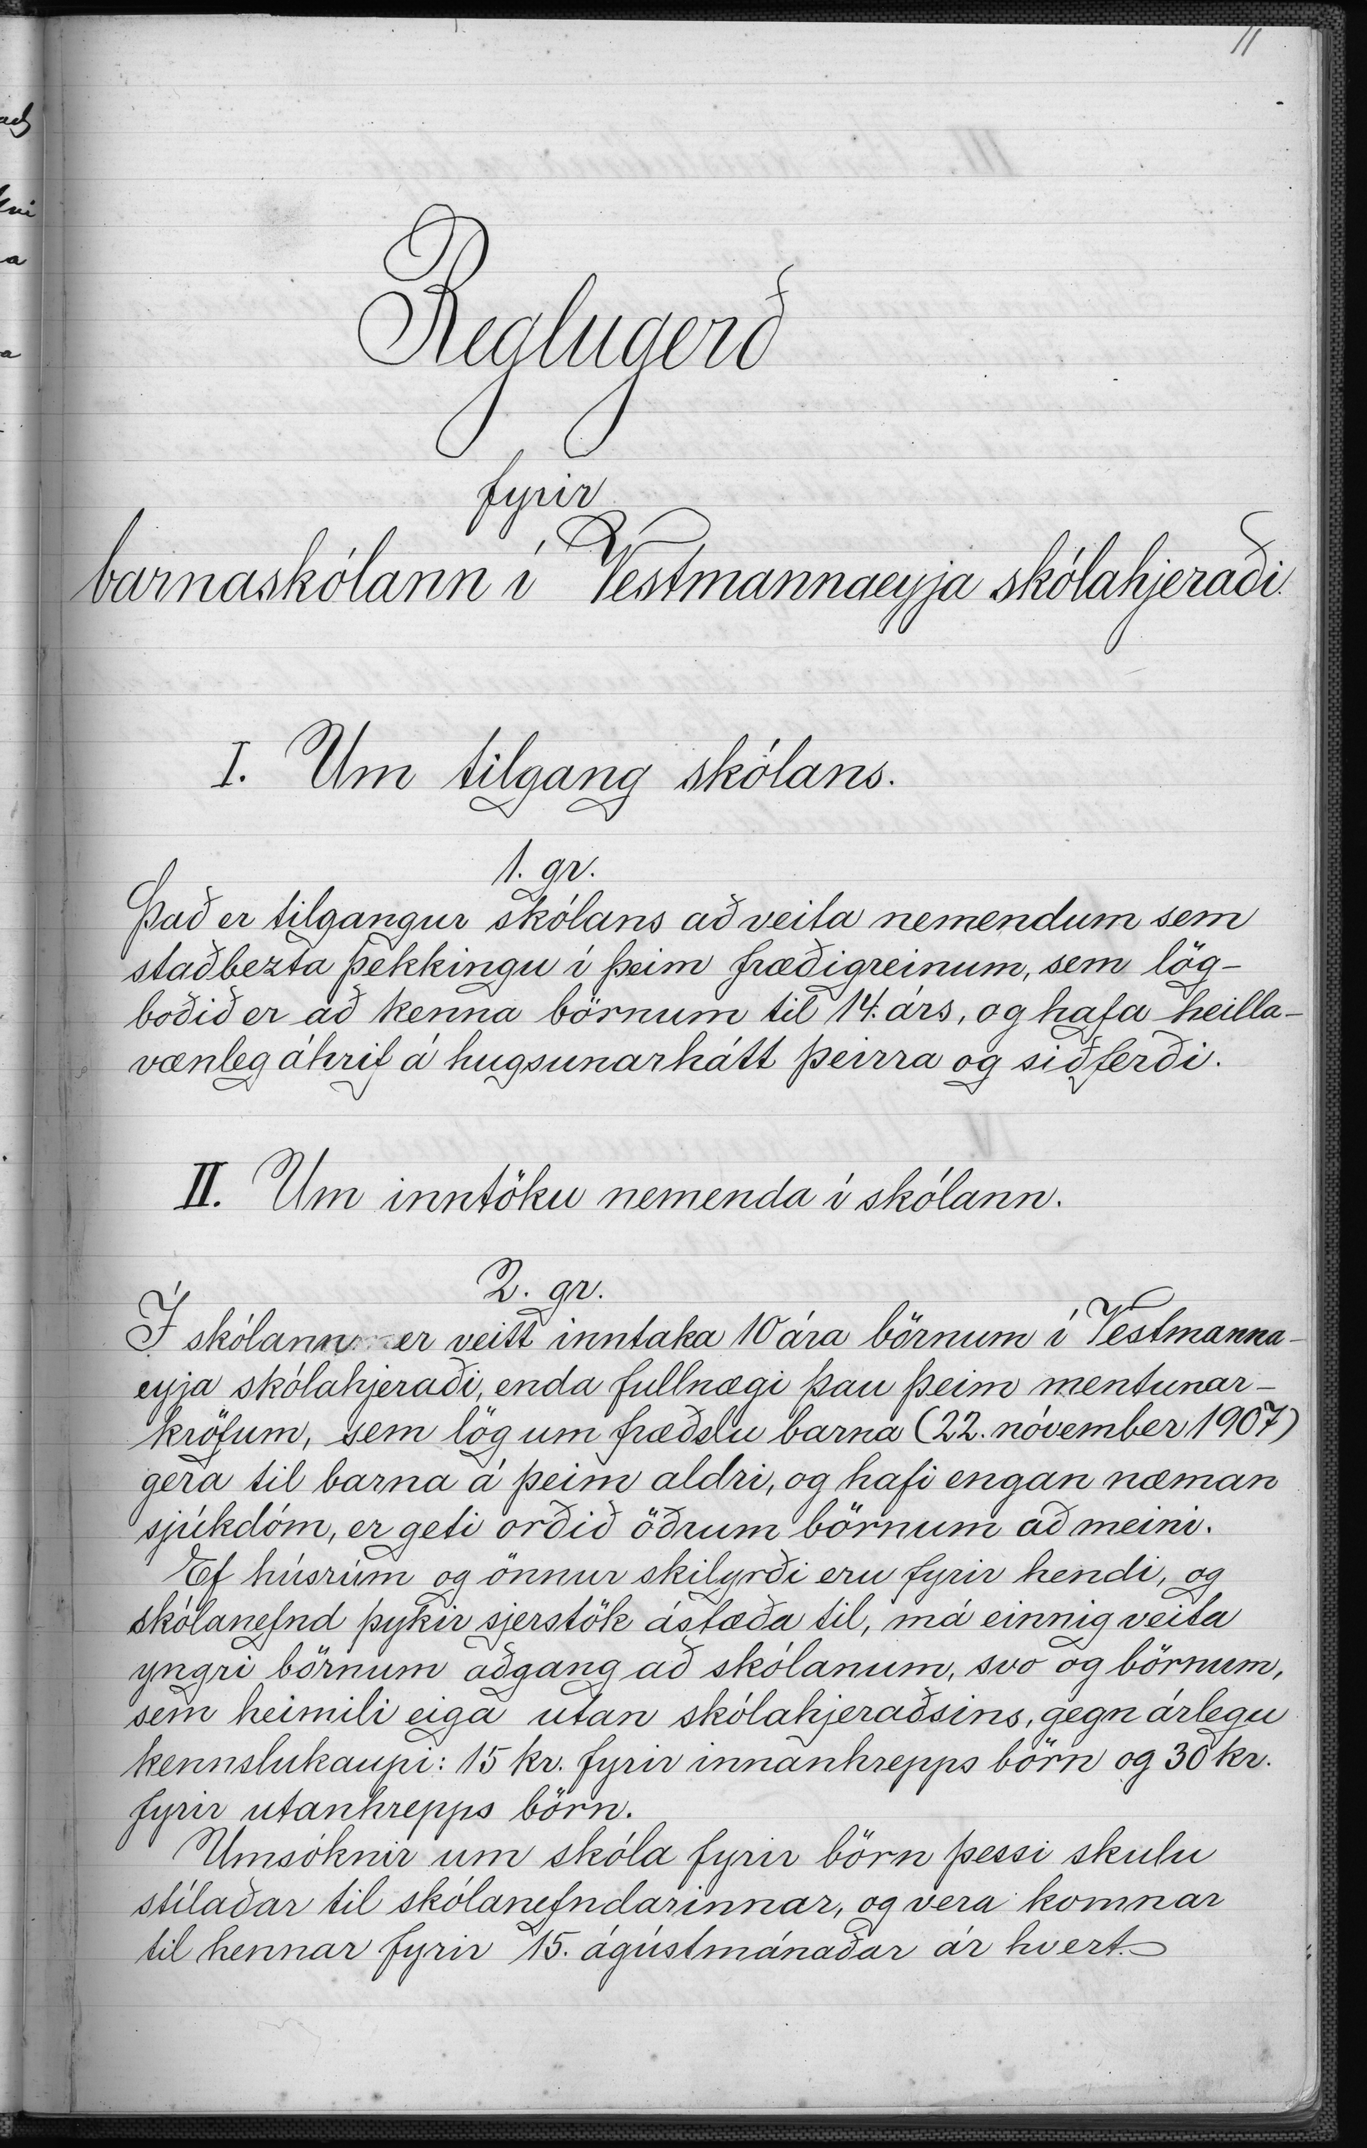 11
Reglugerð
fyrir
barnaskólann í Vestmannaeyja skólahjeraði.
I. Um tilgang skólans.
1. gr.
Það er tilgangur skólans að veita nemendum sem
staðbezta þekkingu í þeim fræðigreinum, sem lög-
boðið er að kenna börnum til 14. árs, og hafa heilla-
vænleg áhrif á hugsunarhátt þeirra og siðferði.
II. Um inntöku nemenda í skólann.
2. gr.
Í skólann er veitt inntaka 10 ára börnum í Vestmanna-
eyja skólahjeraði, enda fullnægi þau þeim mentunar-
kröfum, sem lög um fræðslu barna (22. nóvember 1907)
gera til barna á þeim aldri, og hafi engan næman
sjúkdóm, er geti orðið öðrum börnum að meini.
Ef húsrúm og önnur skilyrði eru fyrir hendi, og
skólanefnd þykir sjerstök ástæða til, má einnig veita
yngri börnum aðgang að skólanum, svo og börnum,
sem heimili eiga utan skólahjeraðsins, gegn árlegu
kennslukaupi: 15 kr. fyrir innanhrepps börn og 30 kr.
fyrir utanhrepps börn.
Umsóknir um skóla fyrir börn þessi skulu
stílaðar til skólanefndarinnar, og vera komnar
til hennar fyrir 15. ágústmánaðar ár hvert.